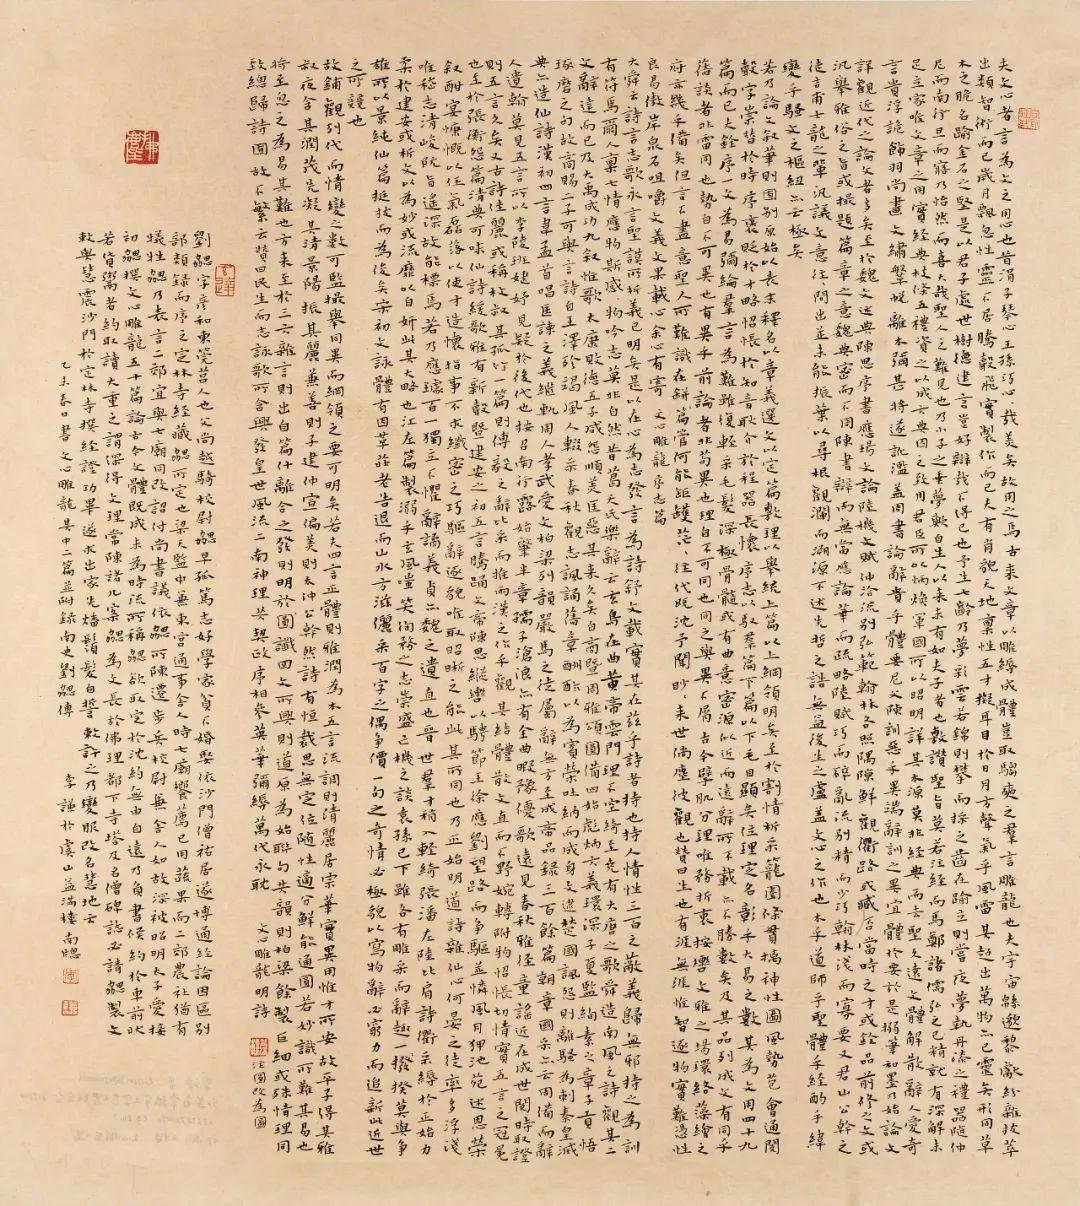 夫文心者言為文之用心也昔涓子琴心王孫巧心哉美矣故用之焉古來文章以雕縟成體豈取騶奭之羣言雕龍也夫宇宙緜邈黎獻紛雜拔萃
出類智術而已歲月飄忽性靈不居騰聲飛實製作而已夫有肖貌天地稟性五才擬耳目於日月方聲氣乎風雷其超出萬物亦已靈矣形同草
木之脆名踰金石之堅是以君子處世樹德建言豈好辯哉不得已也予生七齡乃夢彩雲若錦則攀而採之齒在踰立則嘗夜夢執丹漆之禮器隨仲
尼而南行旦而寤乃怡然而喜大哉聖人之難見也乃小子之垂夢歟自生人以來未有如夫子者也敷讚聖旨莫若注經而馬鄭諸儒弘之已精就有深解未
足立家唯文章之用實經典枝條五禮資之以成六典因之致用君臣所以炳煥軍國所以昭明詳其本源莫非經典而去聖久遠文體解散辭人愛奇
言貴浮詭飾羽尚畫文繡鞶帨離本彌甚將遂訛濫蓋周書論辭貴乎體要尼父陳訓惡乎異端辭訓之異宜體於要於是搦筆和墨乃始論文
詳觀近代之論文者多矣至於魏文述典陳思序書應瑒文論陸機文賦仲洽流別弘範翰林各照隅隙鮮觀衢路或臧否當時之才或銓品前修之文或
汎舉雅俗之旨或撮題篇章之意魏典密而不周陳書辯而無當應論華而疏略陸賦巧而碎亂流別精而少巧翰林淺而寡要又君山公幹之
徒吉甫士龍之輩汎議文意往往間出並未能振葉以尋根觀瀾而溯源不述先哲之誥無益後生之慮蓋文心之作也本乎道師乎聖體乎經酌乎緯
變乎騷文之樞紐亦云極矣
若乃論文敘筆則囿別原始以表末釋名以章義選文以定篇敷理以舉統上篇以上綱領明矣至於割情析采籠圈條貫摛神性圖風勢苞會通閱
聲字崇替於時序褒貶於才略怊悵於知音耿介於程器長懷序志以馭羣篇下篇以下毛目顯矣位理定名彰乎大易之數其為文用四十九
篇而已夫銓序一文為易彌綸羣言為難雖復輕采毛髮深極骨髓或有曲意密源似近而遠辭所不載亦不勝數矣及其品列成文有同乎
舊談者非雷同也勢自不可異也有異乎前論者非苟異也理自不可同也同之與異不屑古今擘肌分理唯務折衷按轡文雅之場環絡藻繪之
府亦幾乎備矣但言不盡意聖人所難識在缾管何能矩矱茫茫往代既沈予聞眇眇來世倘塵彼觀也贊曰生也有涯無涯惟智逐物實難憑性
良易傲岸泉石咀嚼文義文果載心余心有寄 文心雕龍序志篇
大舜云詩言志歌永言聖謨所析義已明矣是以在心為志發言為詩舒文載實其在茲乎詩者持也持人情性三百之蔽義歸無邪持之為訓
有符焉爾人稟七情應物斯感感物吟志莫非自然昔葛天氏樂辭云玄鳥在曲黃帝雲門理不空綺至堯有大唐之歌舜造南風之詩觀其二
文辭達而已及大禹成功九敘惟歌太康敗德五子咸怨順美匡惡其來久矣自商暨周雅頌圓備四始彪炳六義環深子夏監絢素之章子貢悟
琢磨之句故商賜二子可與言詩自王澤殄竭風人輟采春秋觀志諷誦舊章酬酢以為賓榮吐納而成身文逮楚國諷怨則離騷為刺秦皇滅
典亦造仙詩漢初四言韋孟首唱匡諫之義繼軌周人孝武愛文柏梁列韻嚴馬之徒屬辭無方至成帝品錄三百餘篇朝章國采亦云周備而辭
人遺翰莫見五言所以李陵班婕妤見疑於後代也按召南行露始肇半章孺子滄浪亦有全曲暇豫優歌遠見春秋雅徑童謠近在成世閱時取證
則五言久矣又古詩佳麗或稱枚叔其孤竹一篇則傅毅之辭比采而推而漢之作乎觀其結體散文直而不野婉轉附物怊悵切情實五言之冠冕
也至於張衡怨篇清典可味仙詩緩歌雅有新聲暨建安之初五言騰踴文帝陳思縱轡以騁節王徐應劉望路而爭驅並憐風月狎池苑述恩榮
敘酣宴慷慨以任氣磊落以使才造懷指事不求纖密之巧驅辭逐貌唯取昭晰之能此其所同也乃正始明道詩雜仙心何晏之徒率多浮淺
唯嵇志清峻阮旨遙深故能標焉若乃應璩百一獨立不懼辭譎義貞亦魏之遺直也晉世羣才稍入輕綺張潘左陸比肩詩衢采縟於正始力
柔於建安或析文以為妙或流靡以自妍此其大略也江左篇製溺乎玄風嗤笑徇務之志崇盛亡機之談袁孫已下雖各有雕采而辭趣一揆莫與爭
雄所以景純仙篇挺拔而為俊矣宋初文詠體有因革莊老告退而山水方滋儷采百字之偶爭價一句之奇情必極貌以寫物辭必窮力而追新此近世
之所競也
故鋪觀列代而情變之數可監撮舉同異而綱領之要可明矣若夫四言正體則雅潤為本五言流調則清麗居宗華實異用惟才所安故平子得其雅
叔夜含其潤茂先凝其清景陽振其麗兼善則子建仲宣偏美則太沖公幹然詩有恒裁思無定位隨性適分鮮能通圓若妙識所難其易也
將至忽之為易其難也方來至於三六雜言則出自篇什離合之發則明於圖讖回文所興則道原為始聯句共韻則柏梁餘製巨細或殊情理同
致總歸詩圃故不繁云贊曰民生而志詠歌所含興發皇世風流二南神理共契政序相參英華彌縟萬代永耽 文心雕龍明詩 注圖改為圃
劉勰字彥和東莞莒人也父尚越騎校尉勰早孤篤志好學家貧不婚娶依沙門僧祐居遂博通經論因區別
部類錄而序之定林寺經藏勰所定也梁天監中兼東宮通事舍人時七廟饗薦已用蔬果而二郊農社猶有
犧牲勰乃表言二郊宜與七廟同改詔付尚書議依勰所陳遷步兵校尉兼舍人如故深被昭明太子愛接
初勰撰文心雕龍五十篇論古今文體既成未為時流所稱勰欲取定於沈約無由自達乃負書候約於車前狀
若貨鬻者約取讀大重之謂深得文理常陳諸几案勰為文長於佛理都下寺塔及名僧碑誌必請勰製文
敕與慧震沙門於定林寺撰經證功畢遂求出家先燔鬚髮自誓敕許之乃變服改名慧地云
乙未春日書文心雕龍其中二篇並附錄南史劉勰傳 李謹於虞山益清樓南牕